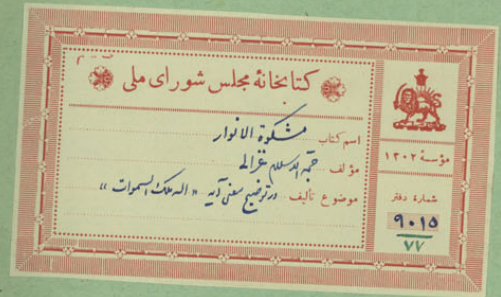 کتابخانهٔ مجلس شورای ملی
اسم کتاب مشکوة الانوار
مؤلف حجة الاسلام غزالی
موضوع تألیف در توضیح معنی آیه « السموات »
مؤسسهٔ ۱۳۰۲
شمارهٔ دفتر
۹۰۱۵
۷۷